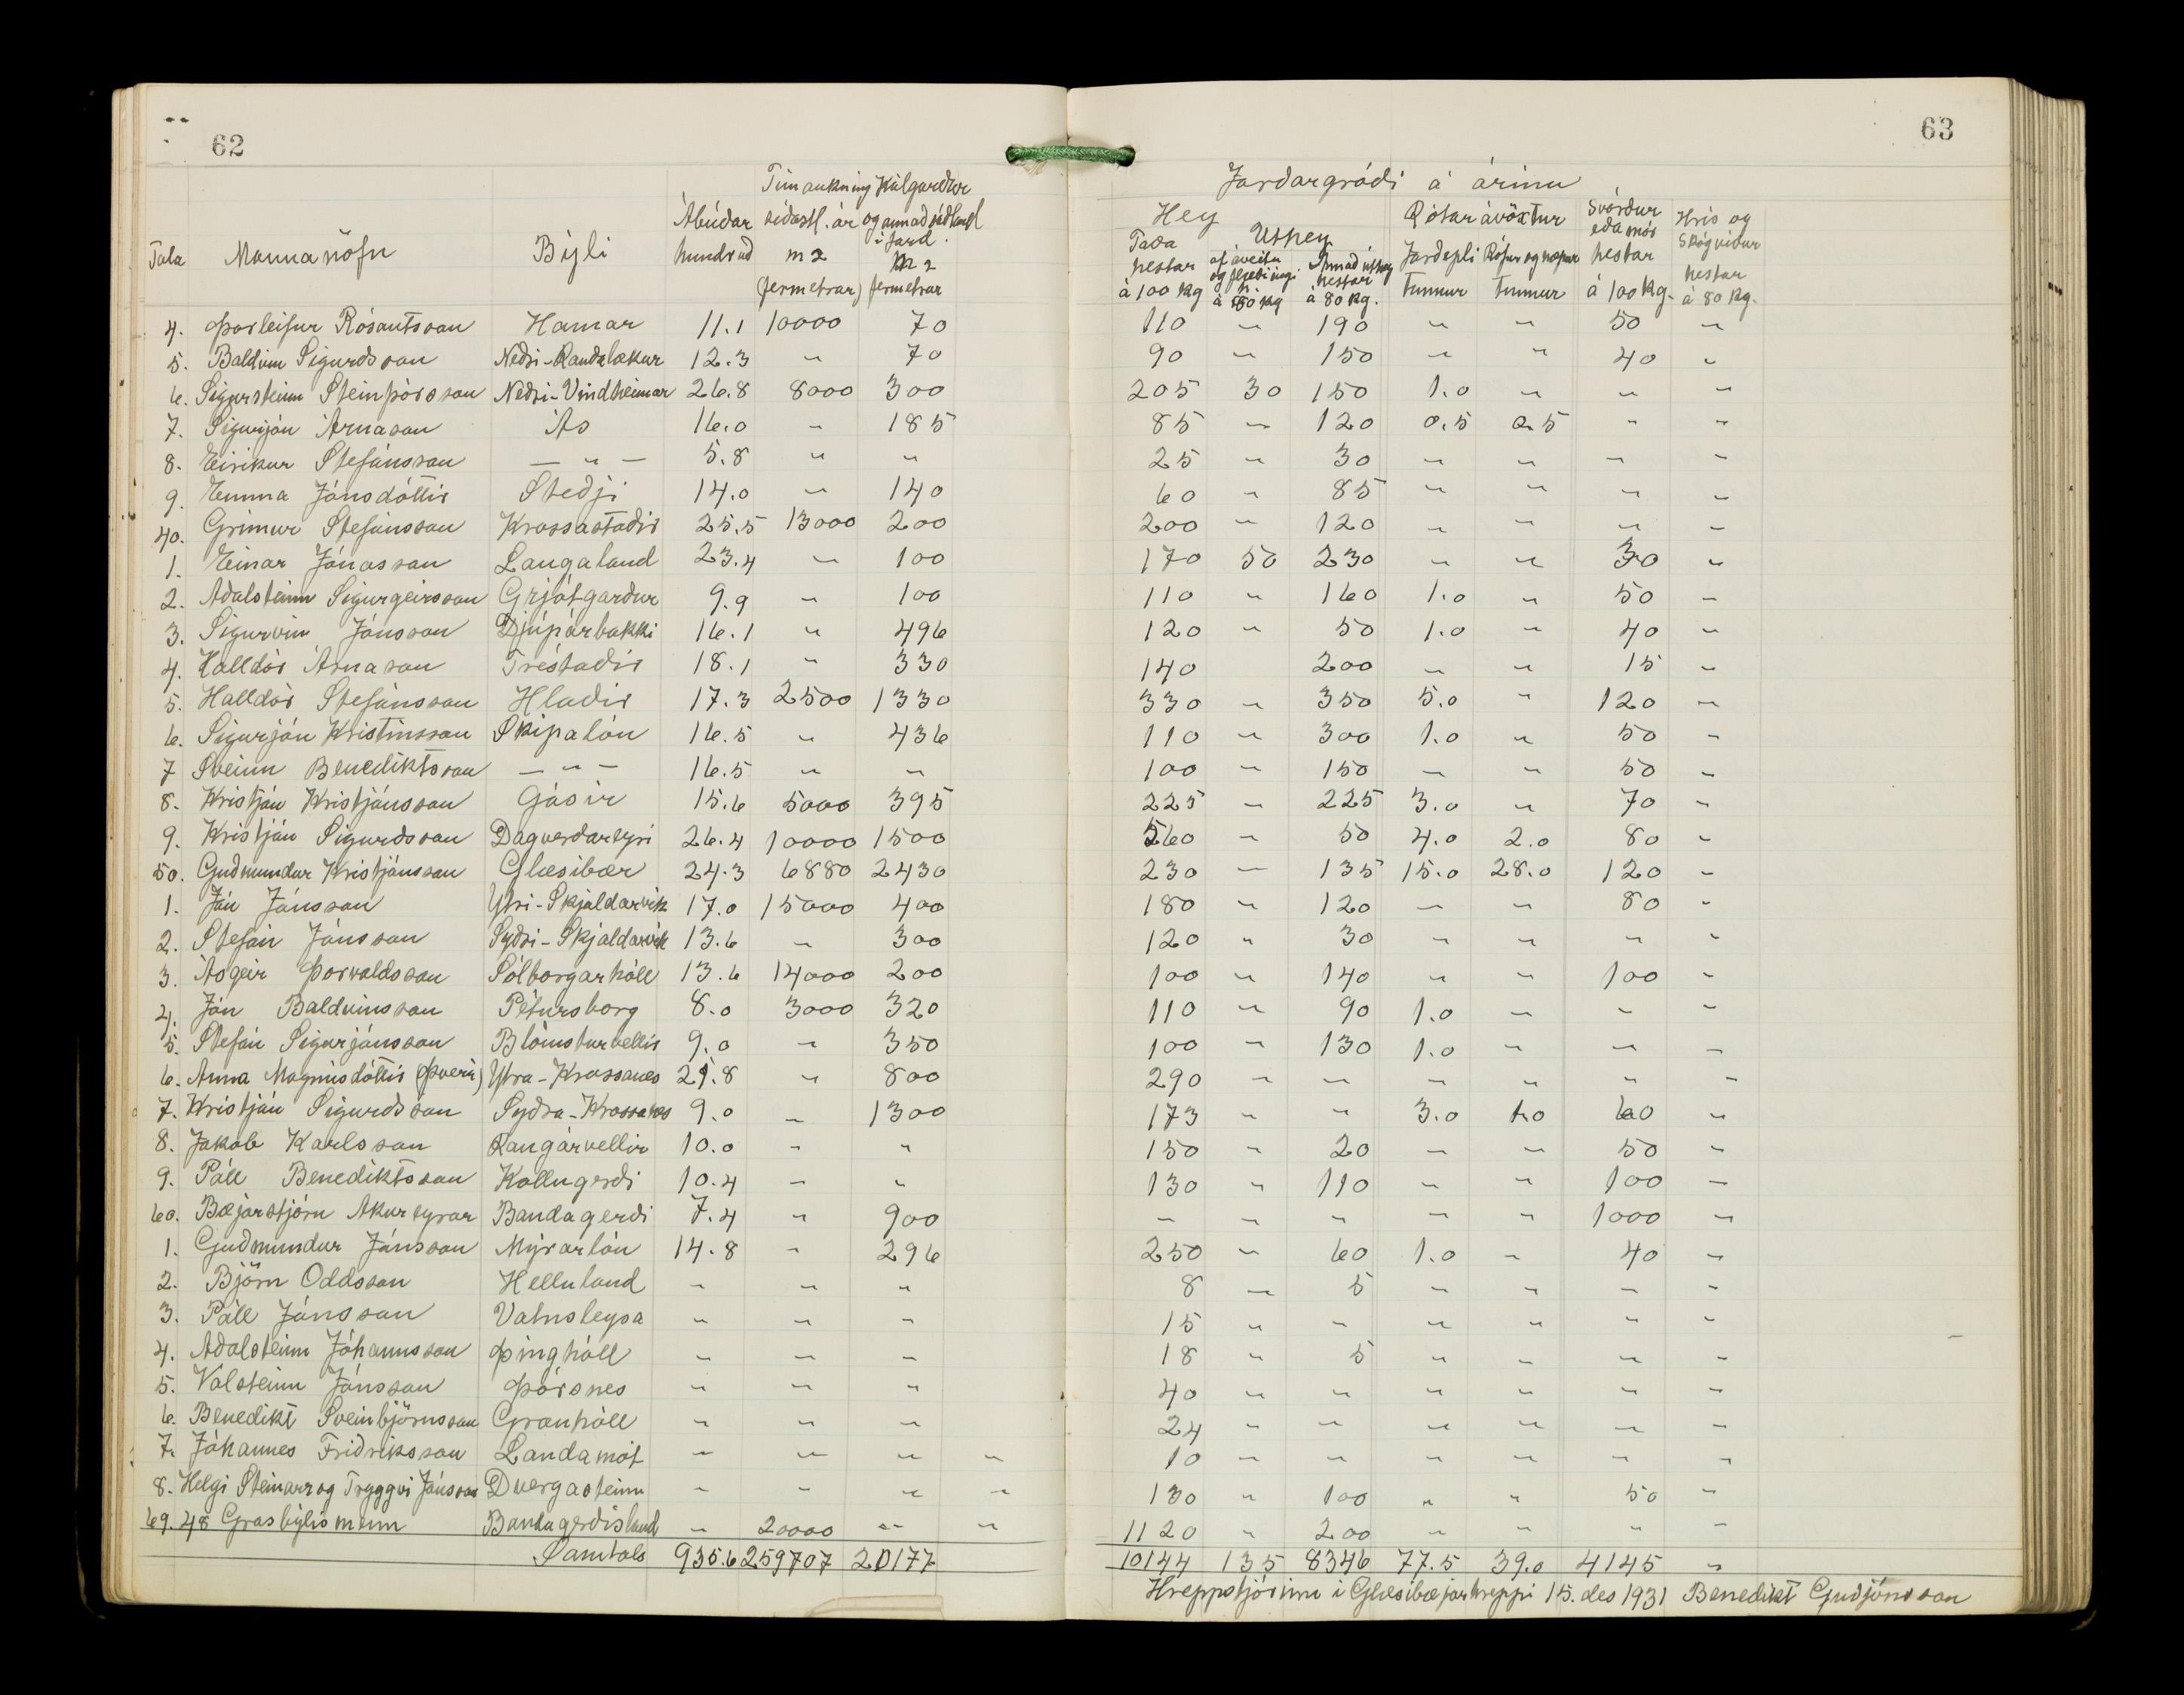 62
Túnaukning Kálgarður
Ábúðar síðastl. ár og annað sáðland
í jarð.
Tala Mannanöfn Býli hundruð m2 m2
(fermetrar) fermetrar
4. Þorleifur Rósantsson Hamar 11.1 10000 70
5. Baldvin Sigurðsson Neðri-Rauðalækur 12.3 " 70
6. Sigursteinn Steinþórsson Neðri-Vindheimar 26.8 8000 300
7. Sigurjón Árnason Ás 16.0 " 185
8. Eiríkur Stefánsson — " — 5.8 " "
9. Emma Jónsdóttir Steðji 14.0 " 140
40. Grímur Stefánsson Krossastaðir 25.5 13000 200
1. Einar Jónasson Laugaland 23.4 " 100
2. Aðalsteinn Sigurgeirsson Grjótgarður 9.9 " 100
3. Sigurvin Jónsson Djúpárbakki 16.1 " 496
4. Halldór Árnason Tréstaðir 18.1 " 330
5. Halldór Stefánsson Hlaðir 17.3 2500 1330
6. Sigurjón Kristinsson Skipalón 16.5 " 436
7 Sveinn Benediktsson — " — 16.5 " "
8. Kristján Kristjánsson Gásir 15.6 5000 395
9. Kristján Sigurðsson Dagverðareyri 26.4 10000 1500
50. Guðmundur Kristjánsson Glæsibær 24.3 6880 2430
1. Jón Jónsson Ytri-Skjaldarvík 17.0 15000 400
2. Stefán Jónsson Syðri-Skjaldarvík 13.6 " 300
3. Ásgeir Þorvaldsson Sólborgarhóll 13.6 14000 200
4. Jón Baldvinsson Pétursborg 8.0 3000 320
5. Stefán Sigurjónsson Blómsturvellir 9.0 " 350
6. Anna Magnúsdóttir (Þverá) Ytra-Krossanes 21.8 " 800
7. Kristján Sigurðsson Syðra-Krossanes 9.0 " 1300
8. Jakob Karlsson Rangárvellir 10.0 " "
9. Páll Benediktsson Kollugerði 10.4 " "
60. Bæjarstjórn Akureyrar Bandagerði 7.4 " 900
1. Guðmundur Jónsson Mýrarlón 14.8 " 296
2. Björn Oddsson Helluland " " "
3. Páll Jónsson Vatnsleysa " " "
4. Aðalsteinn Jóhannsson Þinghóll " " "
5. Valsteinn Jónsson Þórsnes " " "
6. Benedikt Sveinbjörnsson Grænhóll " " "
7. Jóhannes Friðriksson Landamót " " " "
8. Helgi Steinarr og Tryggvi Jónsson Dvergasteinn " " " "
69. 48 Grasbýlismenn Bandagerðisland " 20000 " "
Samtals 935.6 259707 20177
63
Jarðargróði á árinu
Hey Rótarávöxtur Svörður eða mór Hrís og skógviður
Taða Úthey hestar hestar
hestar af áveitu og flæðiengi Annað úthey Jarðepli Rófur og næpur
á 100 kg h. á 80 kg hestar á 80 kg. tunnur tunnur á 100 kg. á 80 kg.
110 " 190 " " 50 "
90 " 150 " " 40 "
205 30 150 1.0 " " "
85 " 120 0.5 0.5 " "
25 " 30 " " " "
60 " 85 " " " "
200 " 120 " " " "
170 50 230 " " 30 "
110 " 160 1.0 " 50 "
120 " 50 1.0 " 40 "
140 200 " " 15 "
330 " 350 5.0 " 120 "
110 " 300 1.0 " 50 "
100 " 150 " " 50 "
225 " 225 3.0 " 70 "
260 " 50 4.0 2.0 80 "
230 " 135 15.0 28.0 120 "
180 " 120 " " 80 "
120 " 30 " " " "
100 " 140 " " 100 "
110 " 90 1.0 " " "
100 " 130 1.0 " " "
290 " " " " " "
173 " " 3.0 1.0 60 "
150 " 20 " " 50 "
130 " 110 " " 100 "
" " " " " 1000 "
250 " 60 1.0 " 40 "
8 " 5 " " " "
15 " " " " " "
18 " 5 " " " "
40 " " " " " "
24 " " " " " "
10 " " " " " "
130 " 100 " " 50 "
1120 " 200 " " " "
10144 135 8346 77.5 39.0 4145 "
Hreppstjórinn í Glæsibæjarhreppi 15. des 1931 Benedikt Guðjónsson